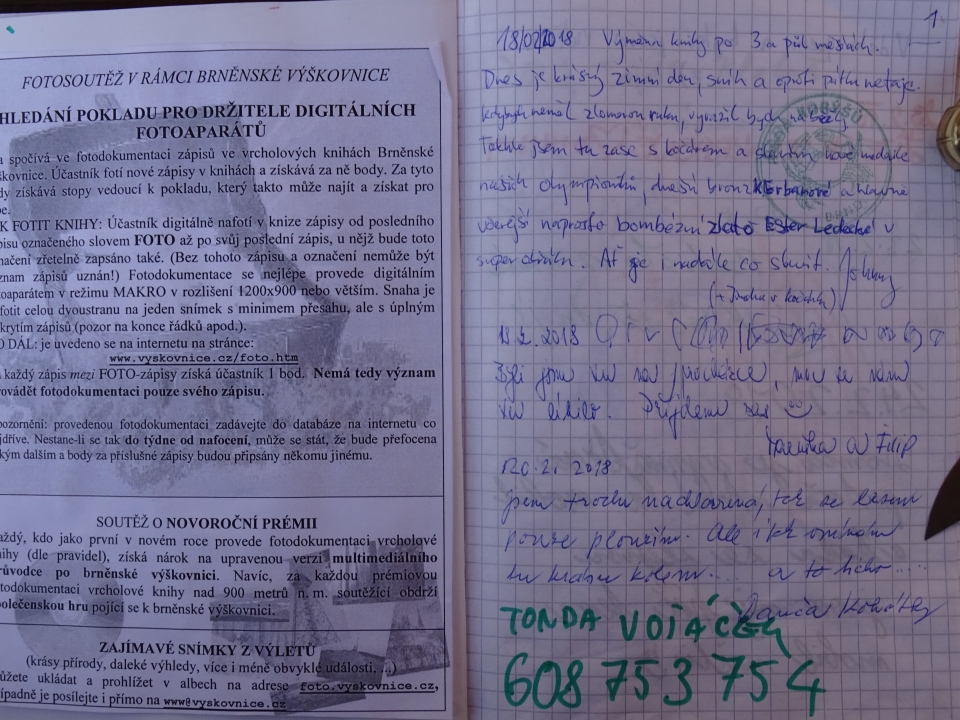 FOTOSOUTĚŽ V RÁMCI BRNĚNSKÉ VÝŠKOVNICE
HLEDÁNÍ POKLADU PRO DRŽITELE DIGITÁLNÍCH
FOTOAPARÁTŮ
a spočívá ve fotodokumentaci zápisů ve vrcholových knihách Brněnské
škovnice. Účastník fotí nové zápisy v knihách a získává za ně body. Za tyto
dy získává stopy vedoucí k pokladu, který takto může najít a získat pro
be.
K FOTIT KNIHU: Účastník digitálně nafotí v knize zápisy od posledního
pisu označeného slovem FOTO až po svůj poslední zápis, u nějž bude toto
načení zřetelně zapsáno také. (Bez tohoto zápisu a označení nemůže být
znam zápisů uznán!) Fotodokumentace se nejlépe provede digitálním
oaparátem v režimu MAKRO v rozlišení 1200x900 nebo větším. Snaha je
fotit celou dvoustranu na jeden snímek s minimem přesahu, ale s úplným
krytím zápisů (pozor na konce řádků apod.).
O DÁL: je uvedeno se na internetu na stránce:
www.vyskovnice.cz/foto.htm
každý zápis mezi FOTO-zápisy získá účastník 1 bod. Nemá tedy význam
rovádět fotodokumentaci pouze svého zápisu.
pozornění: provedenou fotodokumentaci zadávejte do databáze na internetu co
jdříve. Nestane-li se tak do týdne od nafocení, může se stát, že bude přefocena
kým dalším a body za příslušné zápisy budou připsány někomu jinému.
SOUTĚŽ O NOVOROČNÍ PRÉMII
aždý, kdo jako první v novém roce provede fotodokumentaci vrcholové
nihy (dle pravidel), získá nárok na upravenou verzi multimediálního
růvodce po brněnské výškovnici. Navíc, za každou prémiovou
otodokumentaci vrcholové knihy nad 900 metrů n. m. soutěžící obdrží
polečenskou hru pojící se k brněnské výškovnici.
ZAJÍMAVÉ SNÍMKY Z VÝLETŮ
(krásy přírody, daleké výhledy, více i méně obvyklé události, ...)
můžete ukládat a prohlížet v albech na adrese foto.vyskovnice.cz,
řípadně je posílejte i přímo na www@vyskovnice.cz
1
18/02/2018 Výměna knihy po 3 a půl měsících.
Dnes je krásný zimní den, sníh a oproti pátku netaje.
kdybych neměl zlomenou ruku, vyrazil bych na běžky
Takhle jsem tu zase s kočárem a slavím nové medaile
našich olympioniků dnešní bronz K Erbanové a hlavně
včerejší naprosto bombézní zlato Ester Ledecké v
super obřáku. Ať je i nadále co slavit. Johny
18.2.2018
Byli jsme tu na procházce, moc se nám
tu líbilo. Přijdeme zas
a Filip
20.2. 2018
jsem trochu nachlazená, tak se
pouze Ale i tak
tu krásu kolem.... a to ticho.....
TONDA VOJÁČEK
608 753 754